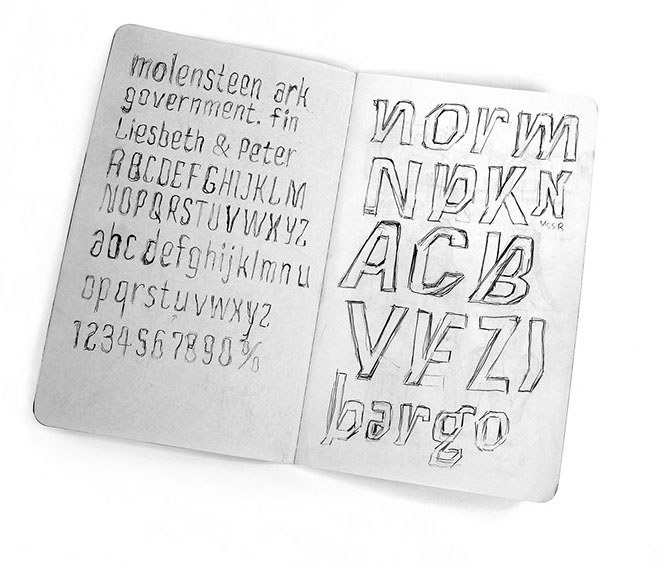 molensteen ark
government. fin
Liesbeth & Peter
ABCDEFGHIJKLM
NOPQRSTUVWXYZ
abcdefghijklmnu
opqrstuvwxyz
1234567890%
norm
NPK
USSR
ACB
VFZI
bargo